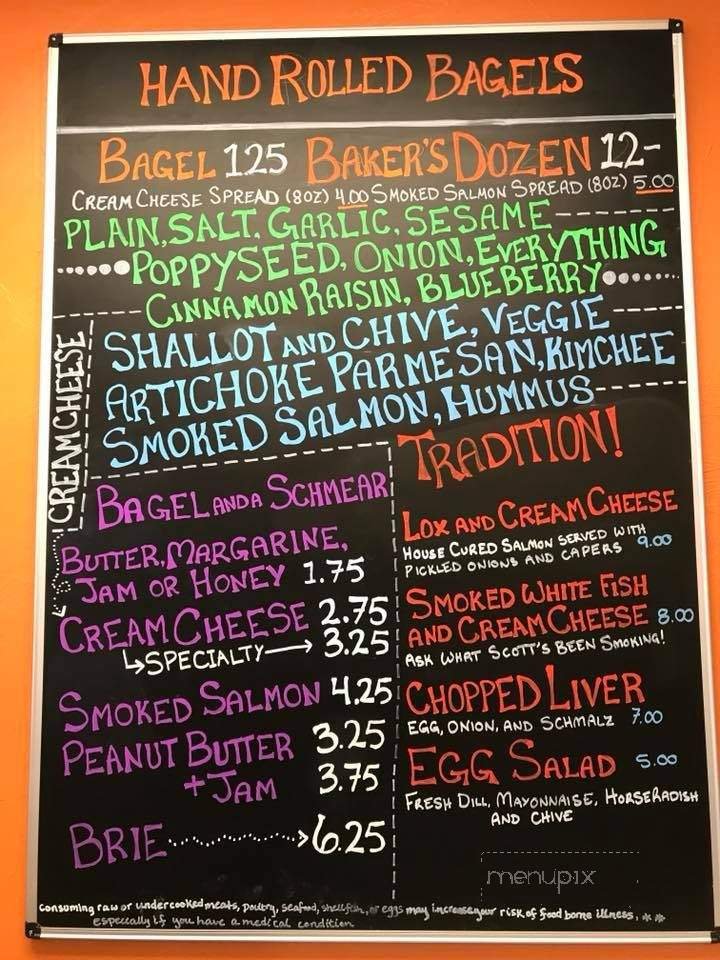 HAND ROLLED BAGELS
BAGEL 125 BAKER'S DOZEN 12-
CREAM CHEESE SPREAD (8OZ) 4.00 SMOKED SALMON SPREAD (8OZ) 5.00
PLAIN, SALT, GARLIC, SESAME
POPPYSEED, ONION, EVERYTHING
CINNAMON RAISIN, BLUEBERRY
CREAM CHEESE
SHALLOT AND CHIVE, VEGGIE
ARTICHOKE PARMESAN, KIMCHEE
SMOKED SALMON, HUMMUS
BAGEL AND A SCHMEAR
BUTTER, MARGARINE,
JAM OR HONEY 1.75
CREAM CHEESE 2.75
SPECIALTY 3.25
SMOKED SALMON 4.25
PEANUT BUTTER 3.25
+ JAM 3.75
BRIE 6.25
TRADITION!
LOX AND CREAM CHEESE
HOUSE CURED SALMON SERVED WITH
PICKLED ONIONS AND CAPERS 9.00
SMOKED WHITE FISH
AND CREAM CHEESE 8.00
ASK WHAT SCOTT'S BEEN SMOKING!
CHOPPED LIVER
EGG, ONION, AND SCHMALZ 7.00
EGG SALAD 5.00
FRESH DILL, MAYONNAISE, HORSERADISH
AND CHIVE
menupix
consuming raw or undercooked meats, poultry, seafood, shellfish, or eggs may increase your risk of food borne illness, **
especially if you have a medical condition